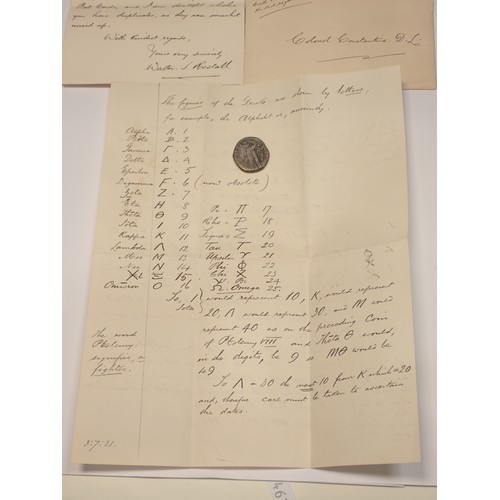 you have duplicates, as they can
With kindest regards,
Yours very sincerely
Walter L.
Colonel
The figures of the Greeks are shown by letters,
for example, the Alphabet is, anciently.
Alpha A. 1
Beta B. 2
Gamma Γ. 3
Delta Δ. 4
Epsilon E. 5
Digamma F. 6 (now obsolete)
Zeta Z. 7
Eta H 8
Theta Θ 9
Iota I 10
Kappa K 11
Lambda Λ 12
Mu M 13
Nu N 14
Xi Ξ 15
Omicron O 16
Pi Π 17
Rho P 18
Sigma Σ 19
Tau T 20
Upsilon ϒ 21
Phi Φ 22
Chi X 23
24
Ω. Omega 25.
So, I) would represent 10, K, would represent
Iota
20, Λ would represent 30, and M would
represent 40 as on the preceding Coin
of Ptolemy VIII and Theta Θ would,
in the digits, be 9 so MΘ would be
49
So Λ = 30 the next 10 from K which is 20
and, therefore care must be taken to ascertain
the dates.
The word
Ptolemy
signifies, a
fighter.